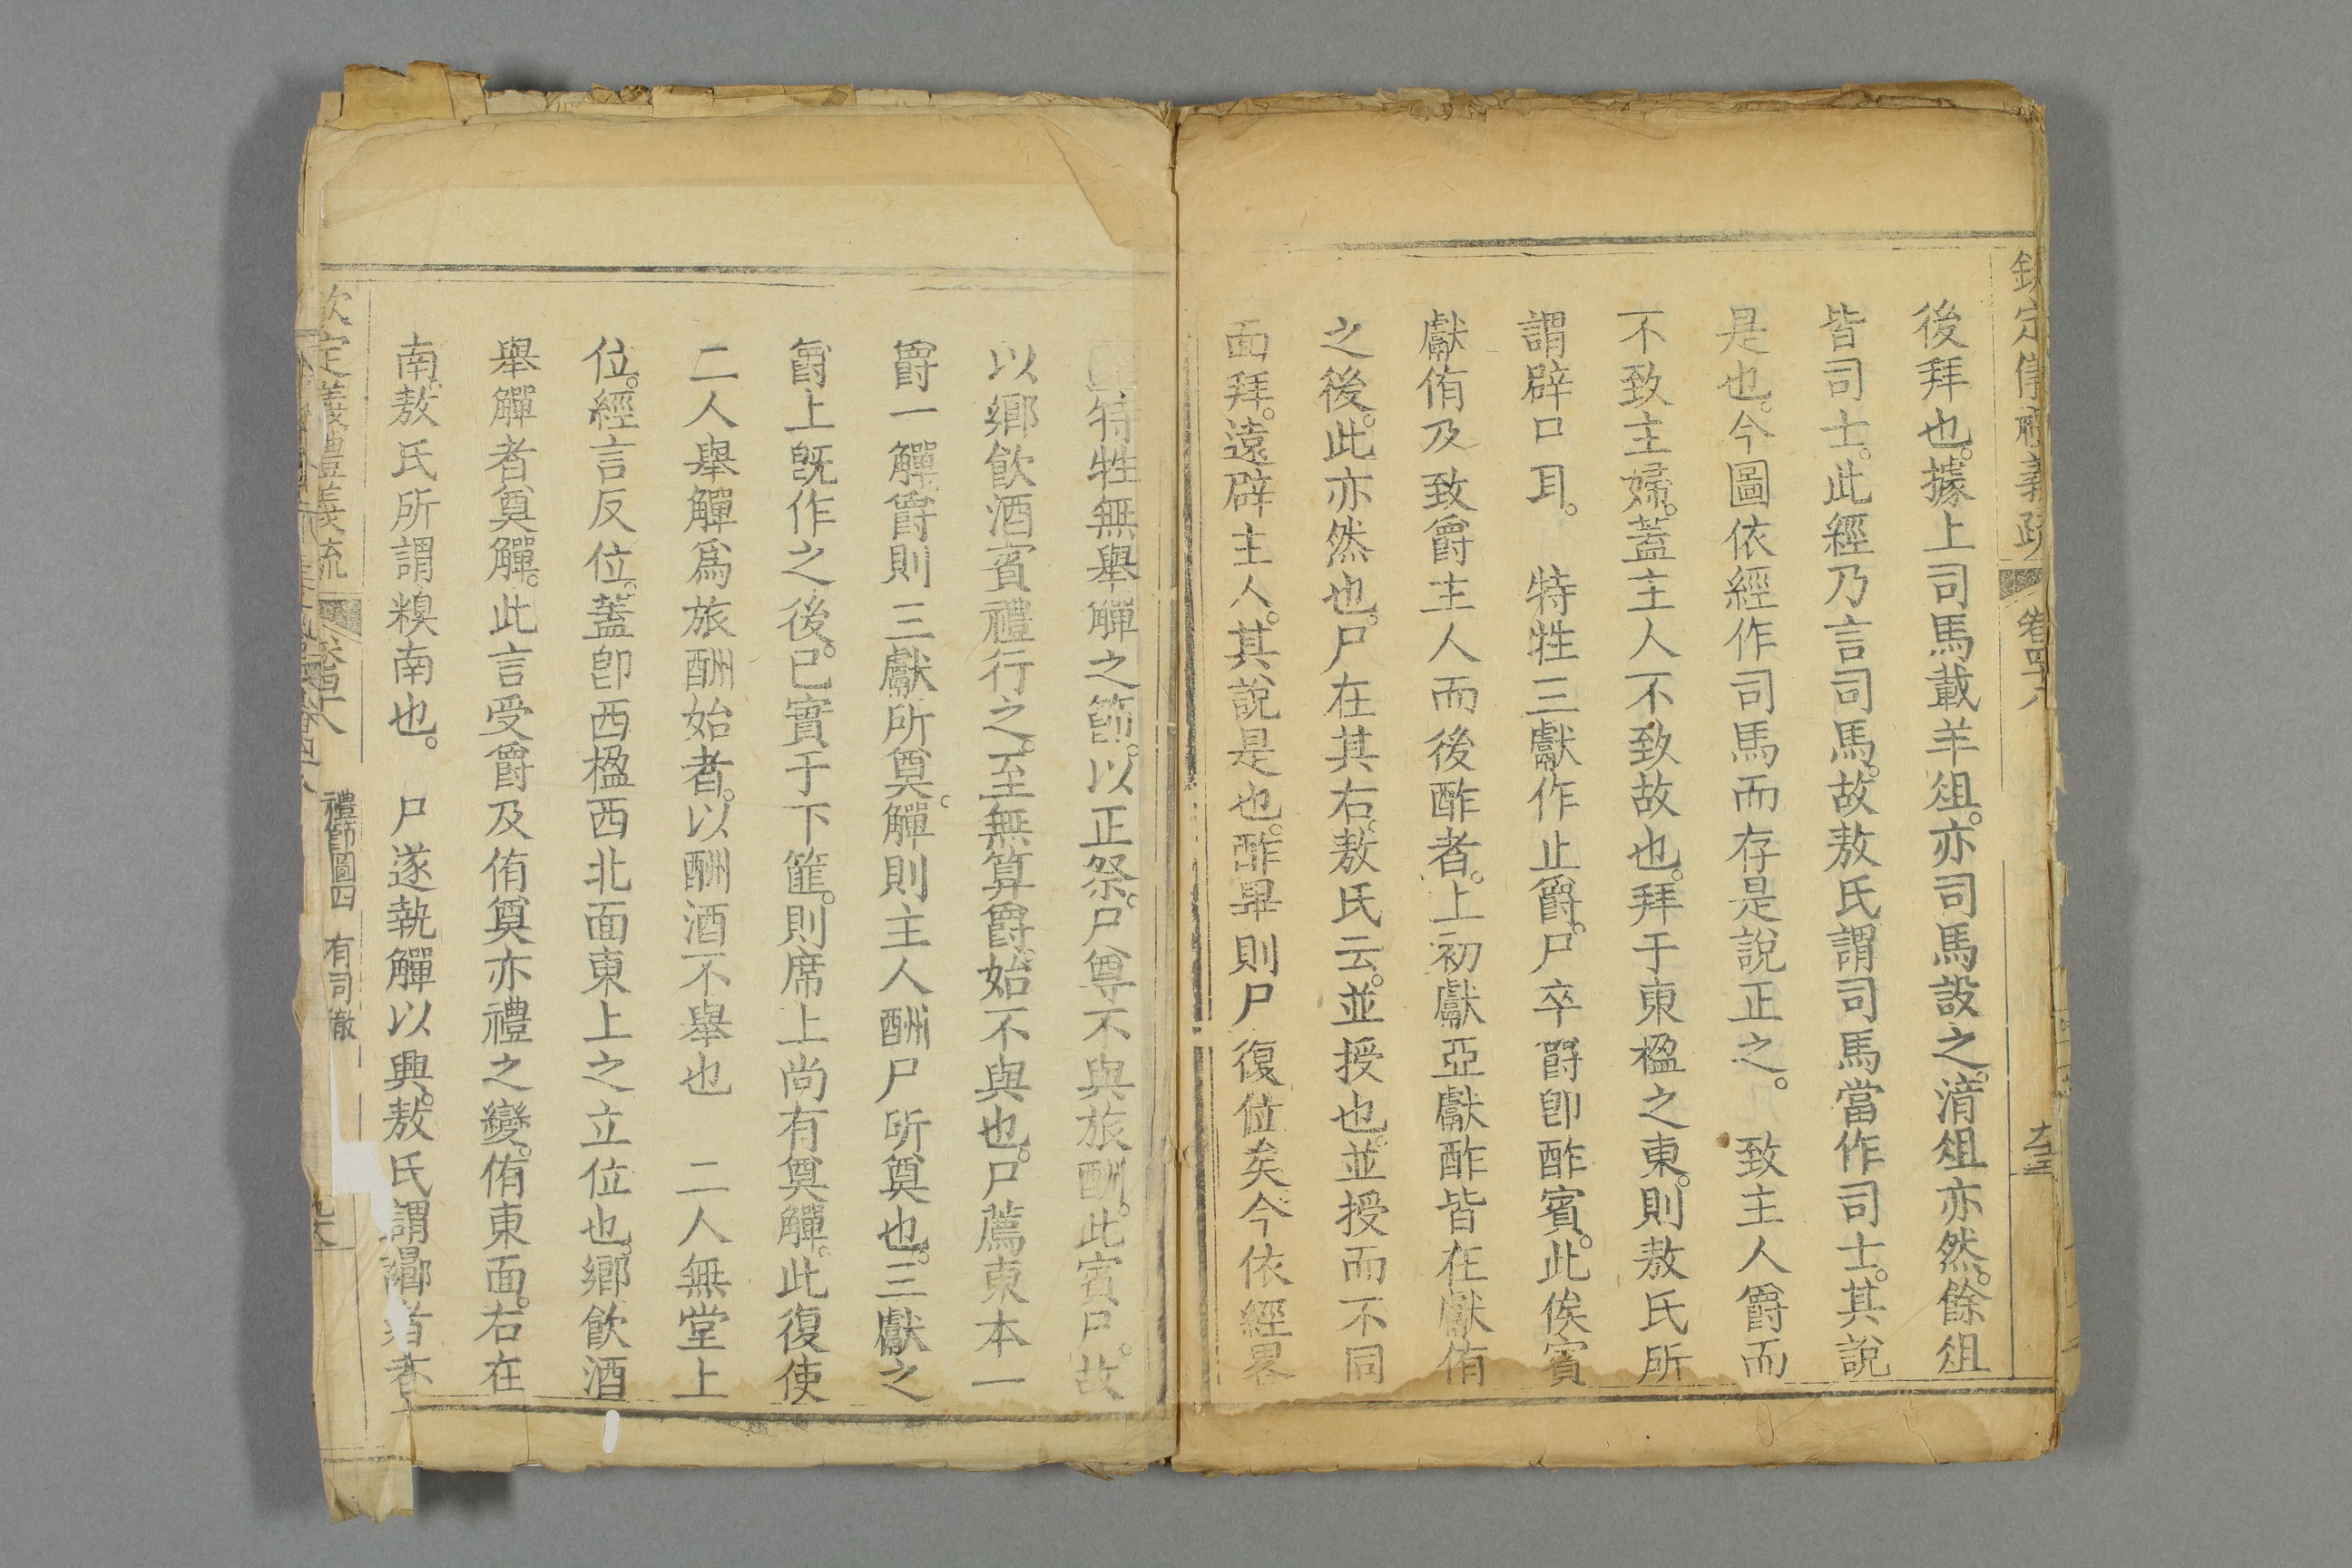 欽定儀禮義疏 卷四十八
後拜也。據上司馬載羊俎。亦司馬設之。湇俎亦然。餘俎
皆司士。此經乃言司馬。故敖氏謂司馬當作司士。其說
是也。今圖依經作司馬而存是說正之。 致主人爵而
不致主婦。蓋主人不致故也。拜于東楹之東。則敖氏所
謂辟口耳。 特牲三獻作止爵。尸卒爵卽酢賓。此俟賓
獻侑及致爵主人而後酢者。上初獻亞獻酢皆在獻侑
之後。此亦然也。尸在其右。敖氏云。並授也。並授而不同
面拜。遠辟主人。其說是也。酢畢則尸復位矣今依經畧
特牲無舉觶之節。以正祭。尸尊不與旅酬。此賓尸。故
以鄉飲酒賓禮行之。至無算爵。始不與也。尸薦東本一
爵一觶。爵則三獻所奠。觶則主人酬尸所奠也。三獻之
爵上旣作之後。已實于下篚。則席上尚有奠觶。此復使
二人舉觶爲旅酬始者。以酬酒不舉也 二人無堂上
位。經言反位。蓋卽西楹西北面東上之立位也。鄉飲酒
舉觶者奠觶。此言受爵及侑奠亦禮之變。侑東面。右在
南。敖氏所謂糗南也。 尸遂執觶以興。敖氏謂曏者
欽定儀禮義疏 卷四十八 禮節圖四 有司徹